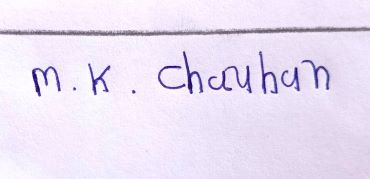 M. K. Chauhan